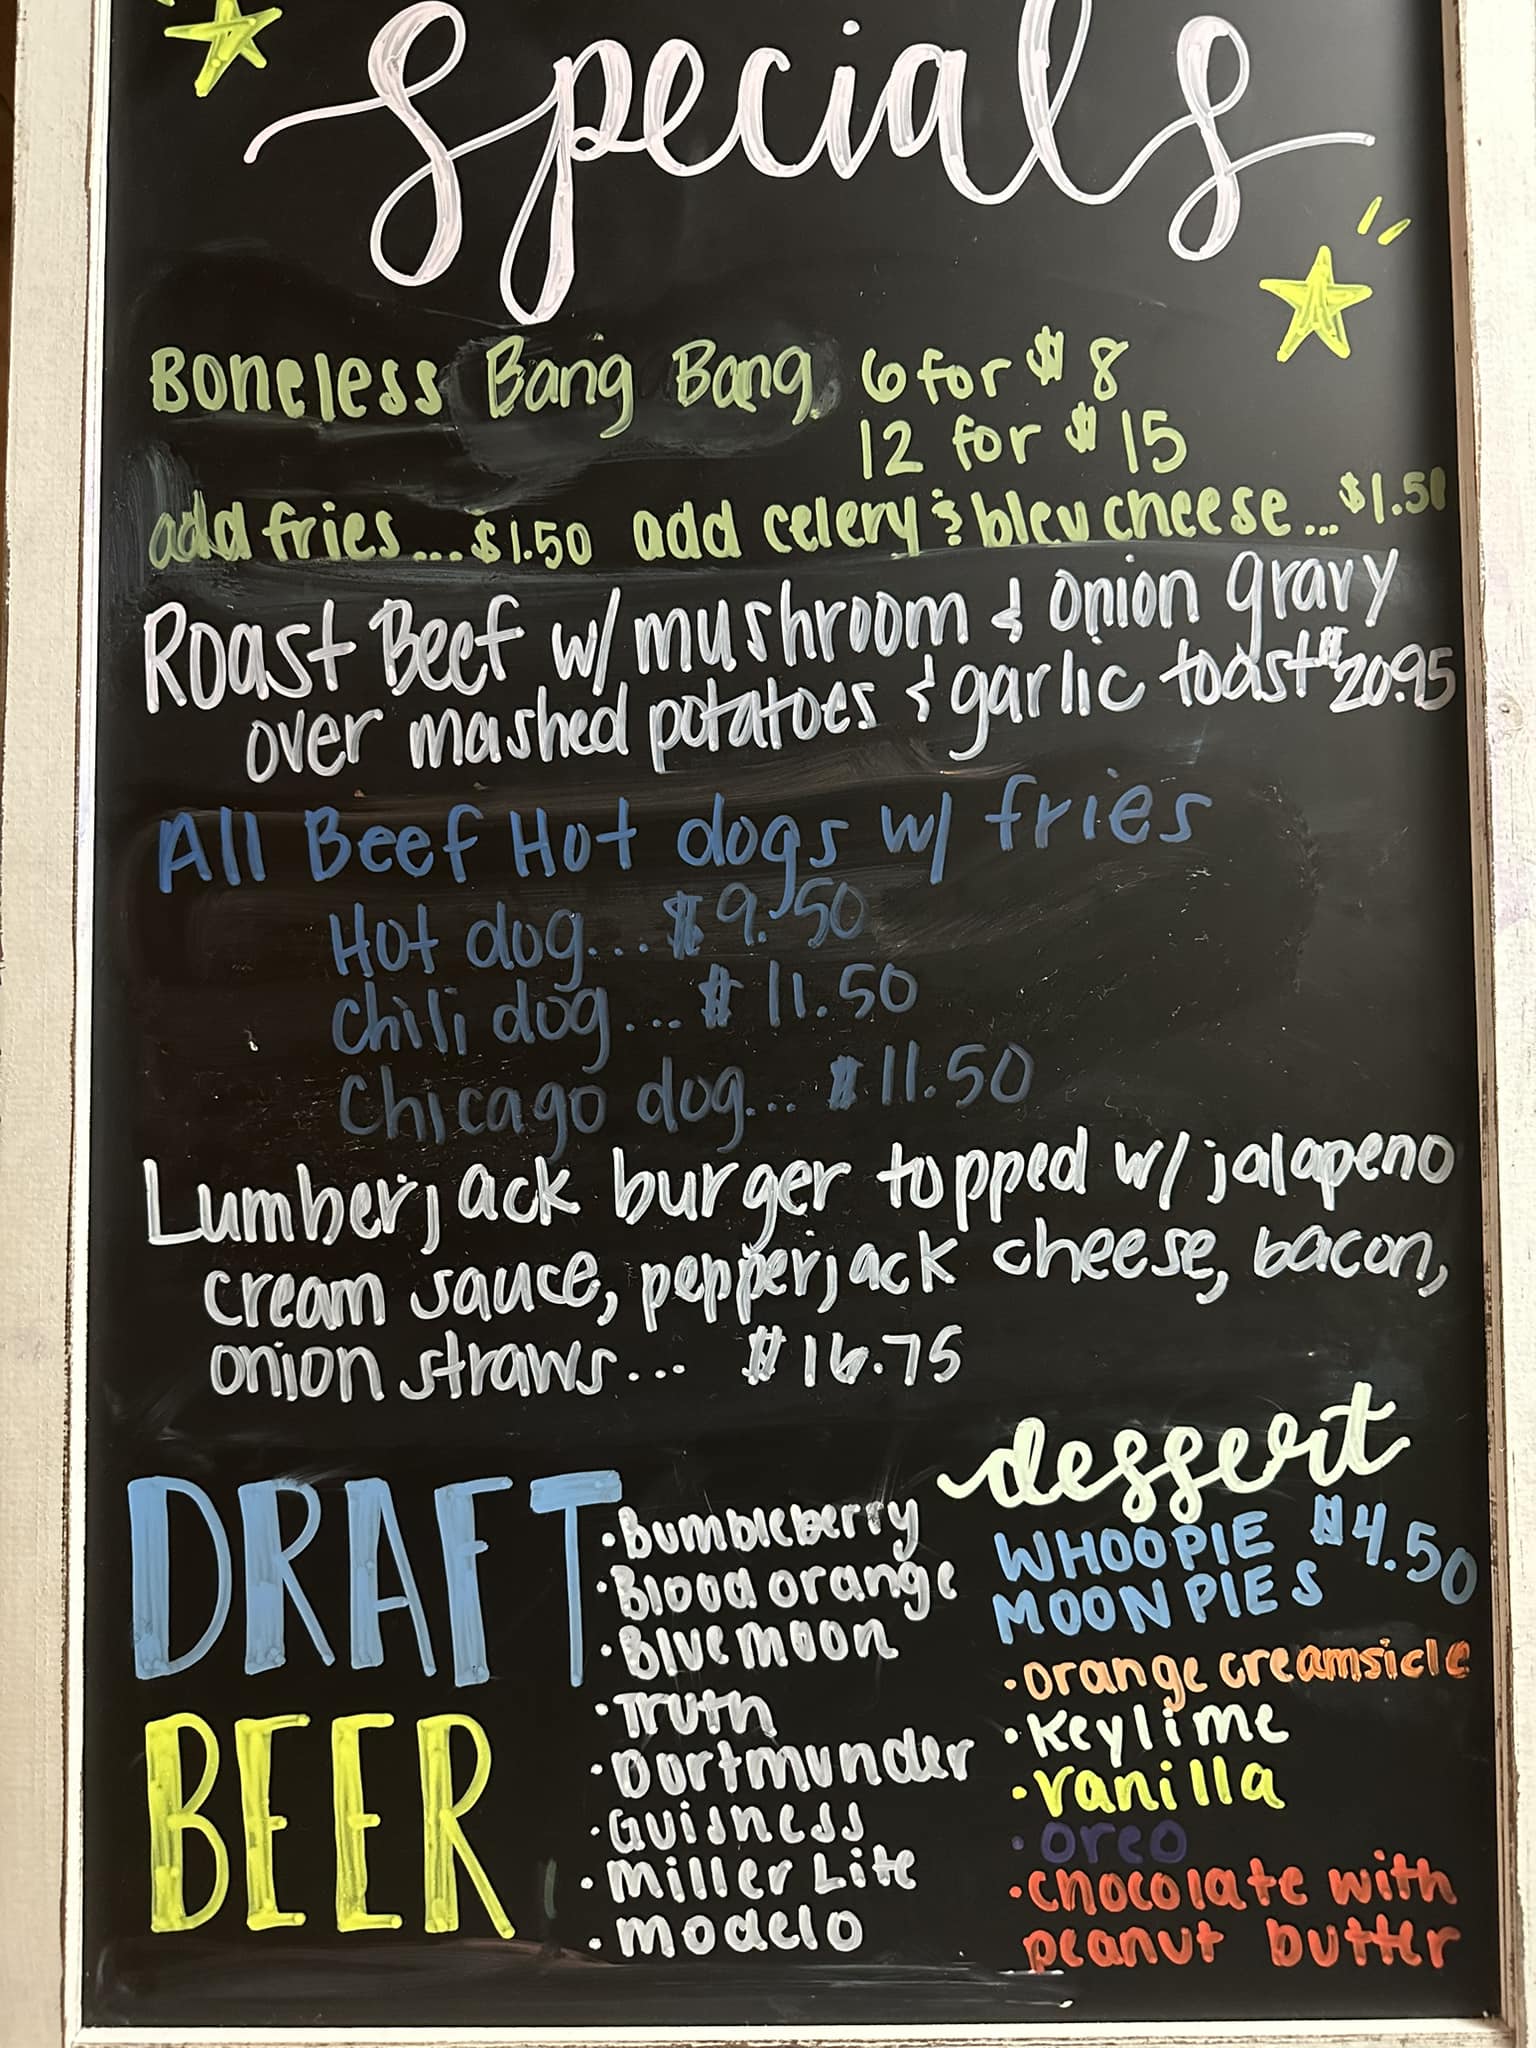 Specials
Boneless Bang Bang 6 for $8
12 for $15
add fries...$1.50 add celery & bleu cheese...$1.50
Roast Beef w/ mushroom & onion gravy
over mashed potatoes & garlic toast $20.95
All Beef Hot dogs w/ fries
Hot dog...$9.50
Chili dog...$11.50
Chicago dog...$11.50
Lumberjack burger topped w/ jalapeno
cream sauce, pepperjack cheese, bacon,
onion straws... $16.75
DRAFT
BEER
•Bumbleberry
•Blood orange
•Blue moon
•Truth
•Dortmunder
•Guisness
•Miller Lite
•Modelo
dessert
WHOOPIE $4.50
MOON PIES
•orange creamsicle
•Keylime
•vanilla
•oreo
•chocolate with
peanut butter